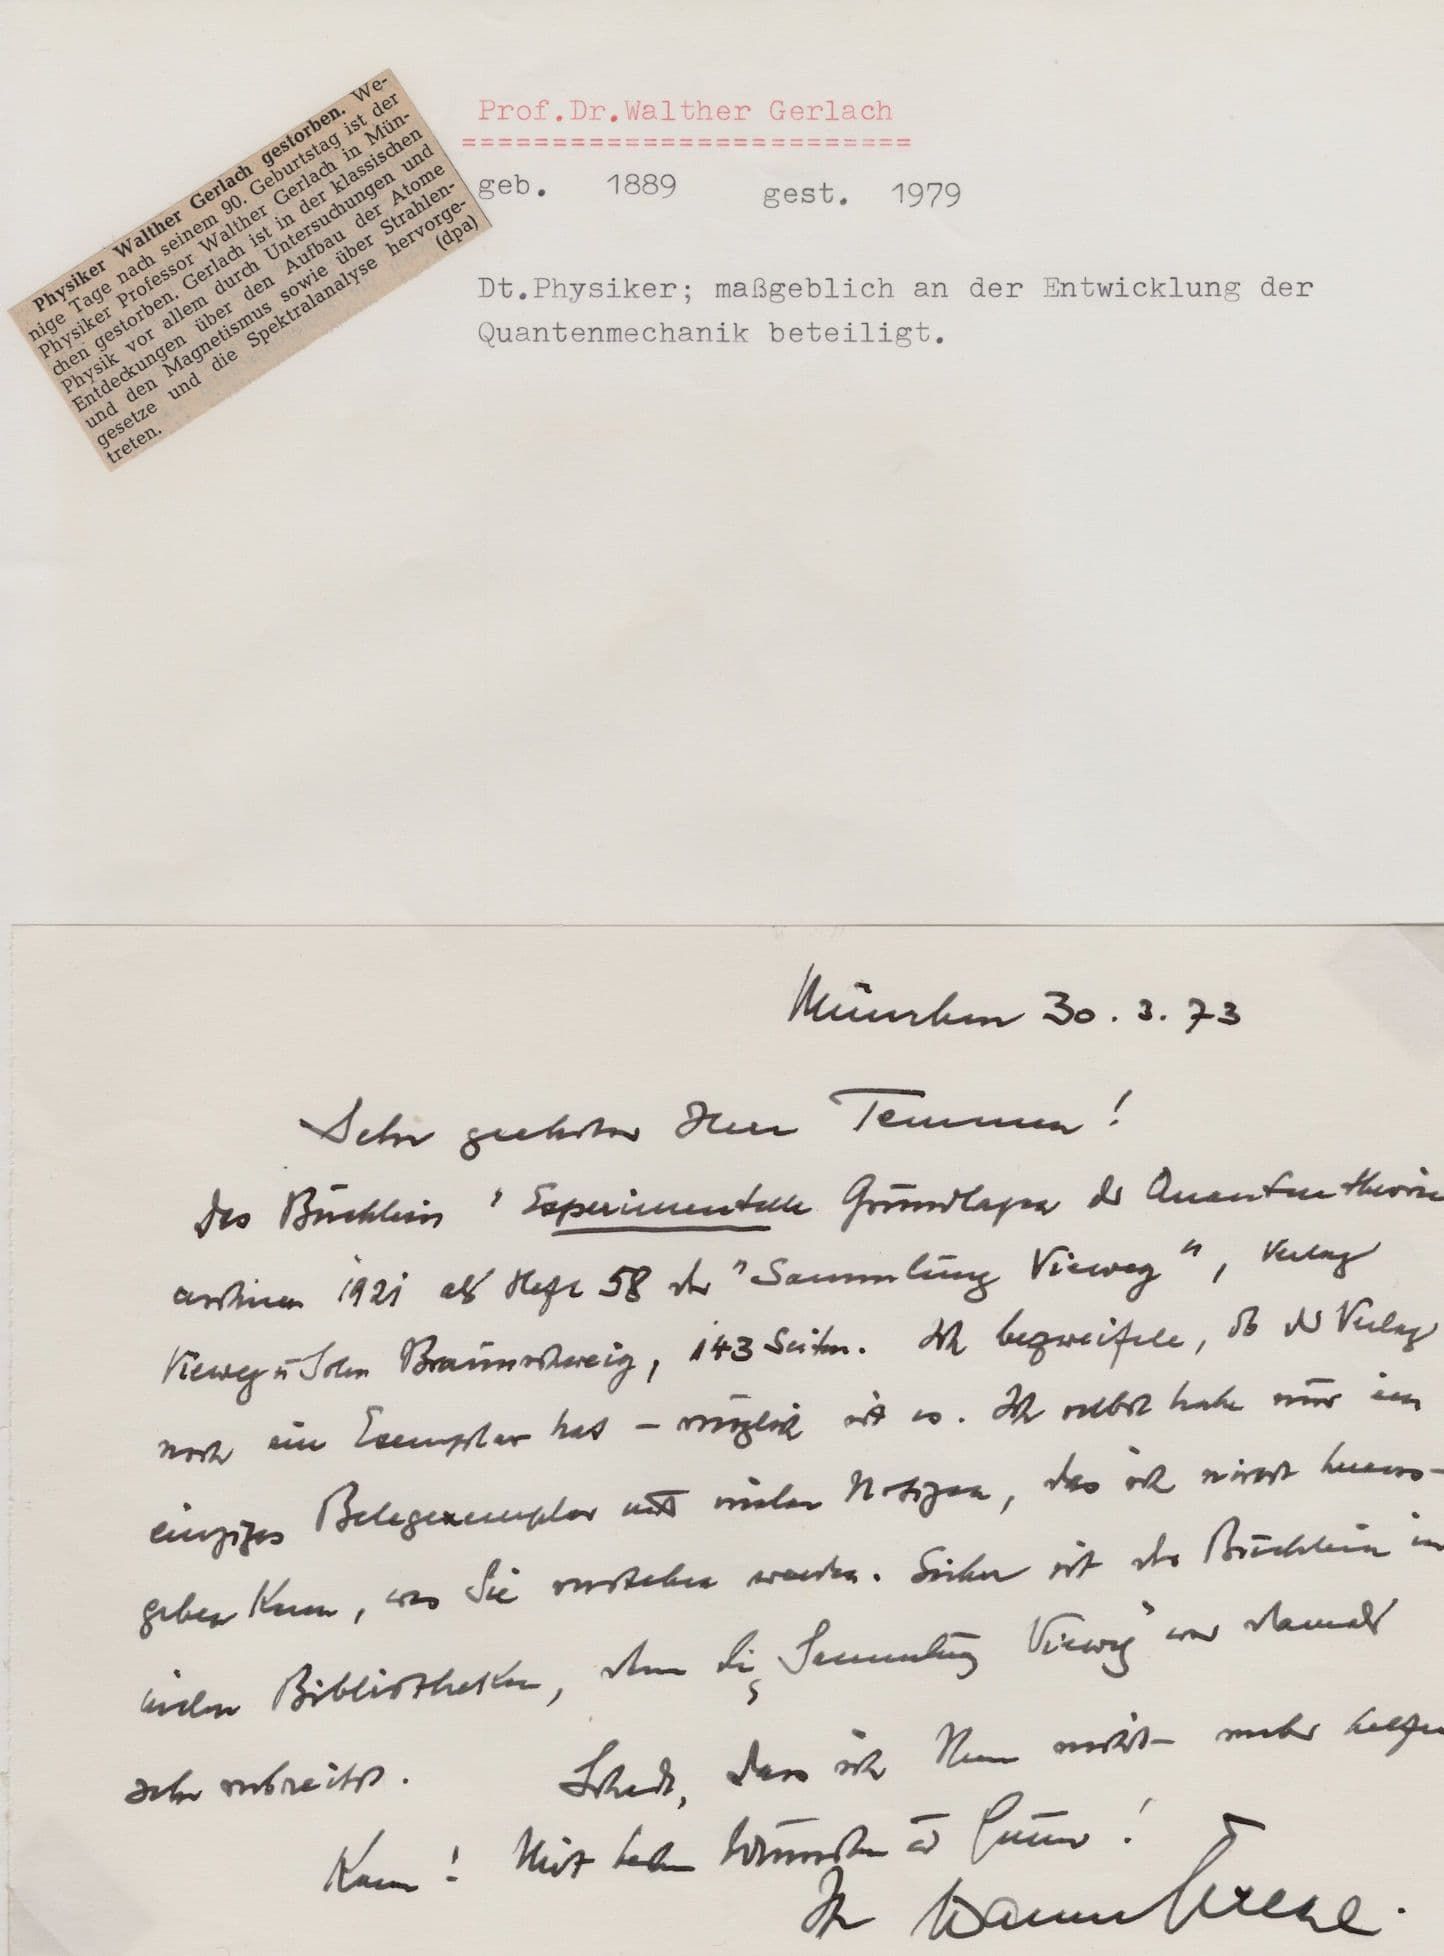 Physiker Walther Gerlach gestorben. We-
nige Tage nach seinem 90. Geburtstag ist der
Physiker Professor Walther Gerlach in Mün-
chen gestorben. Gerlach ist in der klassischen
Physik vor allem durch Untersuchungen und
Entdeckungen über den Aufbau der Atome
und den Magnetismus sowie über Strahlen-
gesetze und die Spektralanalyse hervorge-
treten. (dpa)
Prof.Dr.Walther Gerlach
=========================
geb. 1889 gest. 1979
Dt.Physiker; maßgeblich an der Entwicklung der
Quantenmechanik beteiligt.
München 30.3.73
Sehr geehrter Herr Temmen!
Das Büchlein "Experimentelle Grundlagen der Quantentheorie
erschien 1921 als Heft 58 der "Sammlung Vieweg", Verlag
Vieweg u Sohn Braunschweig, 143 Seiten. Ich bezweifele, ob der Verlag
noch ein Exemplar hat – möglich ist es. Ich selbst habe nur ein
einziges Belegexemplar mit vielen Notizen, das ich nicht heraus-
geben kann, was Sie verstehen werden. Sicher ist das Büchlein in
vielen Bibliotheken, denn die "Sammlung Vieweg" war damals
sehr verbreitet. Schade, dass ich Ihnen nicht mehr helfen
kann! Mit besten Wünschen u Grüssen!
Ihr Walther Gerlach.